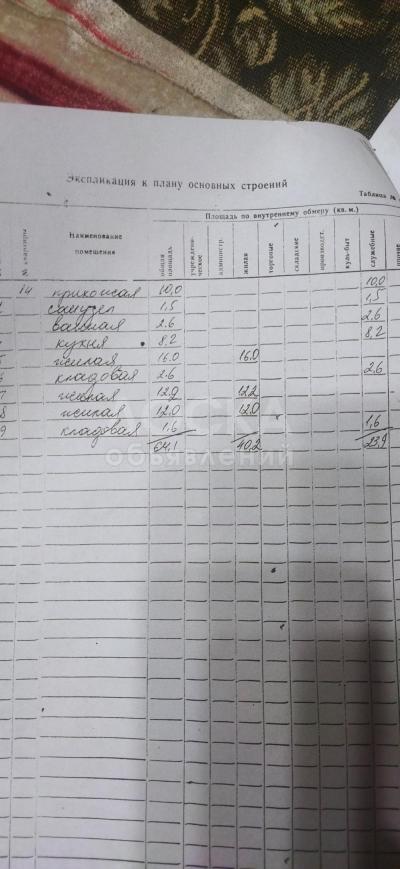 Экспликация к плану основных строений
Таблица №
№ квартиры
Наименование помещения
Площадь по внутреннему обмеру (кв. м.)
общая площадь
учрежденческое
администр.
жилая
торговые
складские
производст.
куль-быт
служебные
14 прихожая 10,0 10,0
санузел 1,5 1,5
ванная 2.6 2.6
кухня 8.2 8.2
жилая 16.0 16.0
кладовая 2.6 2.6
7 жилая 12.2 12.2
8 жилая 12.0 12.0
9 кладовая 1,6 1,6
64,1 40,2 23,9
ДОСКА
объявлений